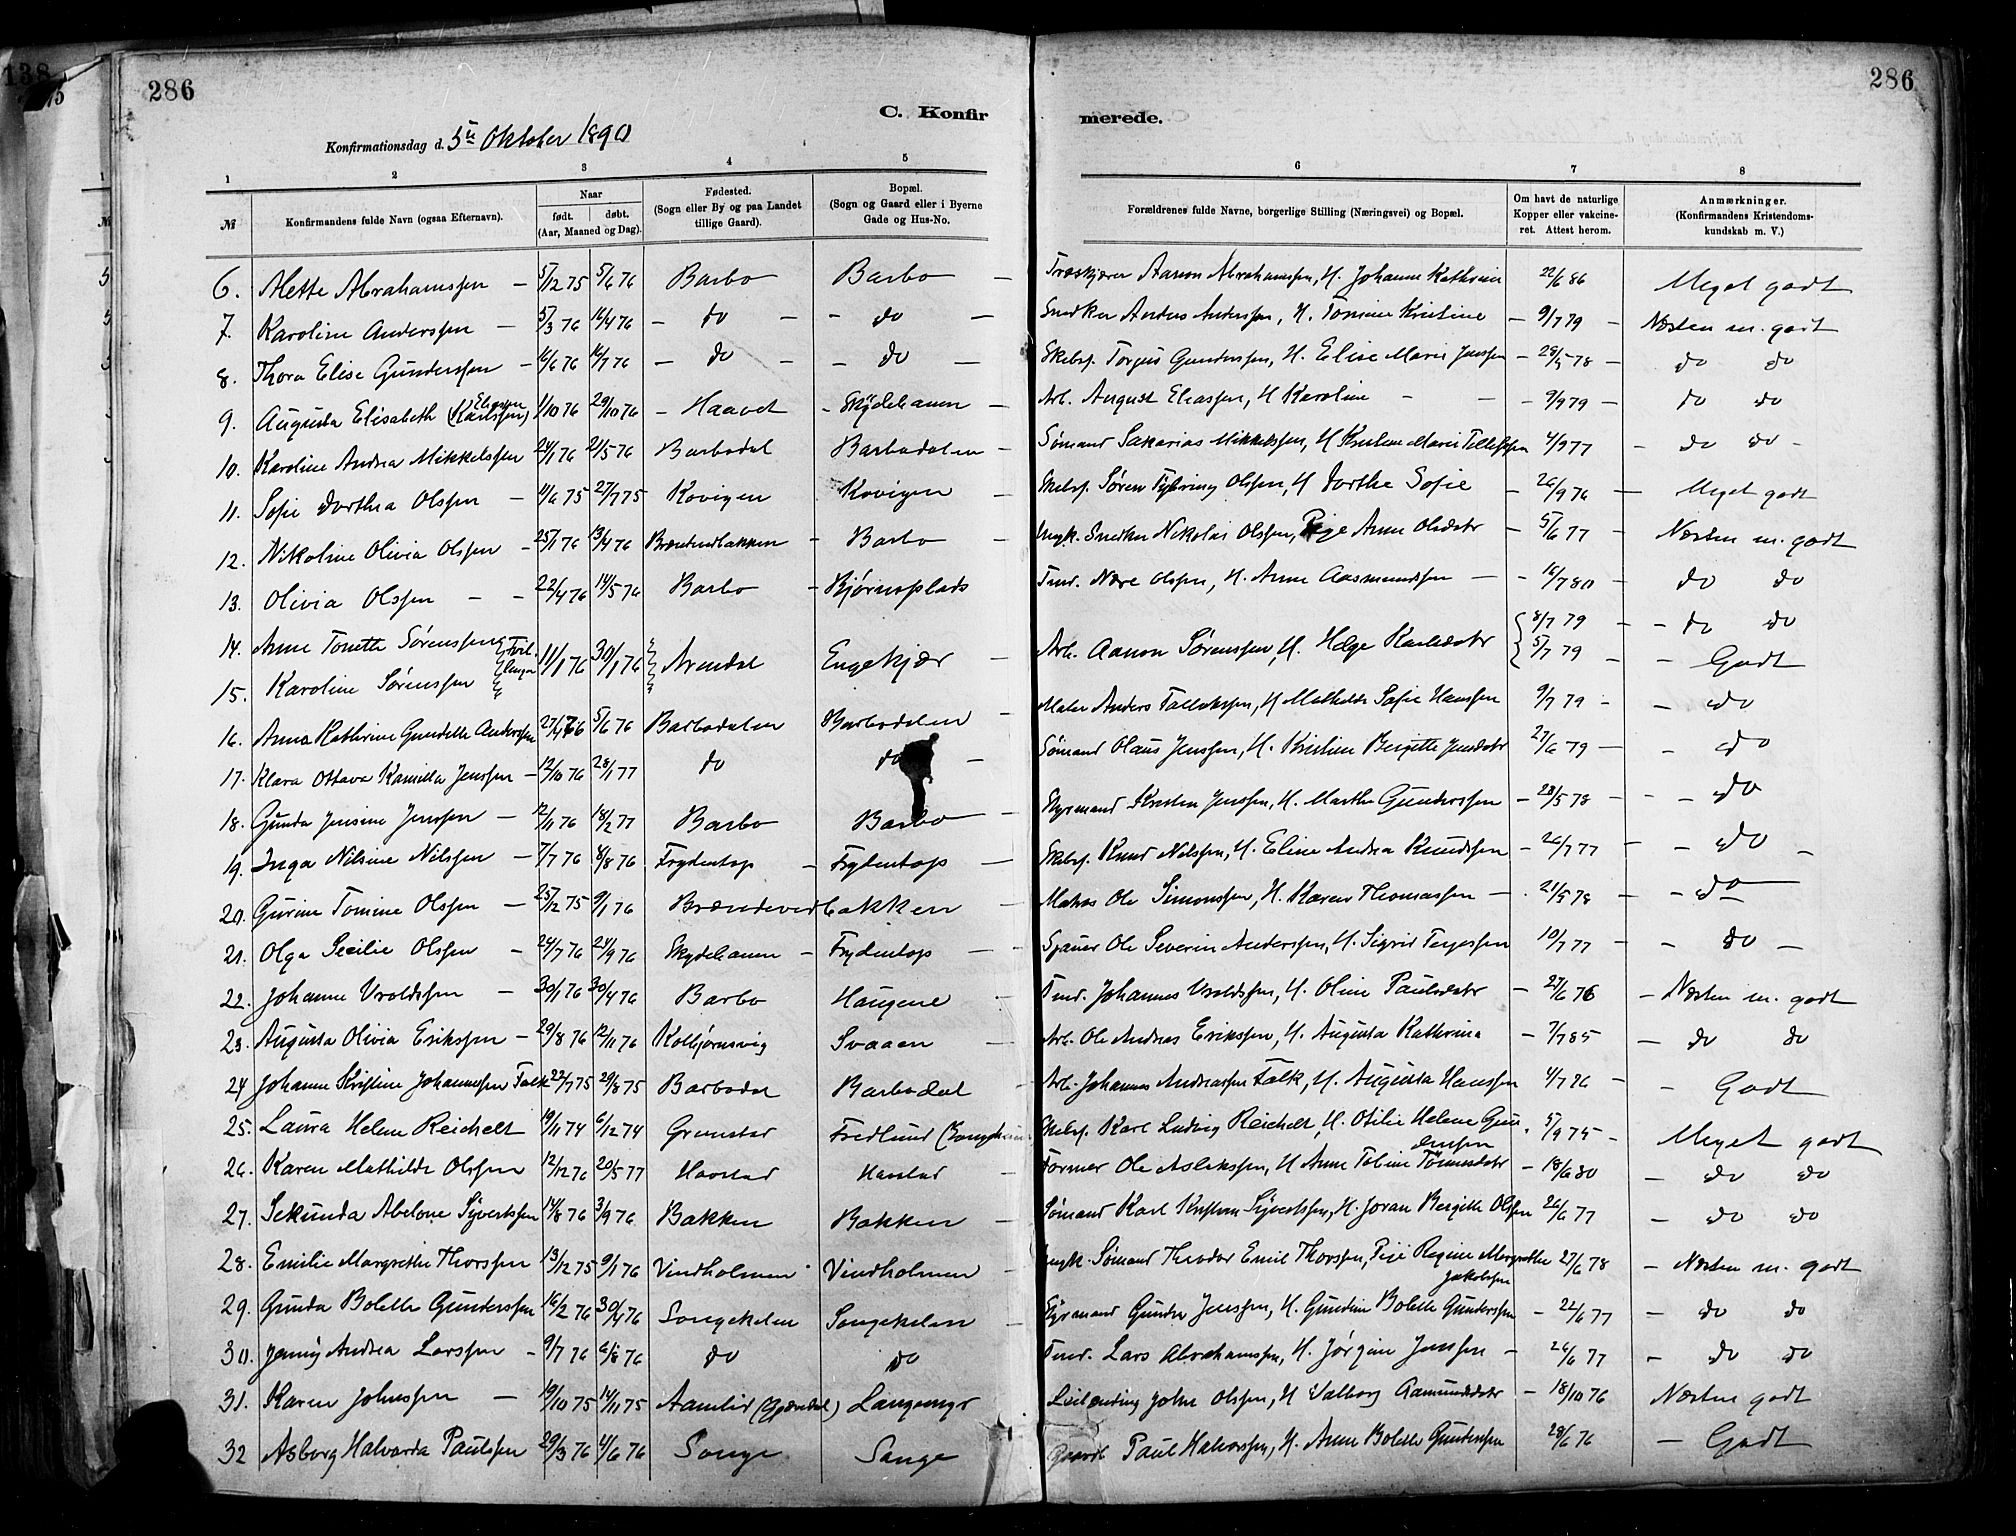 286
286
C. Konfir
merede.
Konfirmationsdag d. 5te Oktober 1890
1 2 3 4 5 6 7 8
№ Konfirmandens fulde Navn (ogsaa Efternavn). Naar født. døbt. (Aar, Maaned og Dag). Fødested. (Sogn eller By og paa Landet tillige Gaard). Bopæl. (Sogn og Gaard eller i Byerne Gade og Hus-No. Forældrenes fulde Navne, borgerlige Stilling (Næringsvei) og Bopæl. Om havt de naturlige Kopper eller vakcineret. Attest herom. Anmærkninger. (Konfirmandens Kristendomskundskab m. V.)
6. Alette Abrahamssen – 5/12 75 5/6 76 Barbo Barbo – Træskjærer Aanon Abrahamssen, H. Johanne Kathrine 22/6 86 Meget godt
7. Karoline Anderssen – 5/3 76 16/4 76 – do – – do – Snedker Anders Anderssen, H. Tomine Kristine – 9/7 79 – Næsten m. godt
8. Thora Elise Gunderssen – 16/6 76 16/7 76 – do – – do – Skibsf. Torgus Gunderssen, H. Elise Marie Jenssen – 28/5 78 – do do
9. Augusta Elisabeth (Karlssen) Eliassen 1/10 76 29/10 76 – Haavet – Skydehavnen – Arb. August Eliassen, H Karoline – – – 9/9 79 – do do
10. Karoline Andrea Mikkelssen 24/1 76 21/5 76 Barbodal Barbodalen – Sømand Sakarias Mikkelssen, H Kristine Marie Tellefssen 4/9 77 – do do –
11. Sofie Dorthea Olssen – 11/6 75 27/7 75 Kovigen Kovigen – Skibsf. Søren Olssen, H Dorthe Sofie – 26/9 76 – Meget godt
12. Nikoline Olivia Olssen – 25/1 76 13/4 76 Brændevedbakken – Barbo – Ungk. Snedker Nikolai Olssen, Pige Anne Olsdatr – 5/6 77 – Næsten m. godt
13. Olivia Olssen – – 22/4 76 14/5 76 Barbo – Bjørnsplads Tmd. Olssen, H. Anne Aasmundssen – – 16/7 80 – do do
14. Anne Tonette Sørenssen Tvillinger 11/1 76 30/1 76 Arendal Engekjær – Arb. Aanon Sørenssen, H. Helge Karlsdatr 8/7 79 – – do do
15. Karoline Sørenssen 5/7 79 – – Godt
16. Anna Kathrine Gundelle Anderssen 27/4 76 5/6 76 Barbodalen Barbodalen – Maler Anders Tallakssen, H Mathilde Sofie Hanssen 9/7 79 – – do
17. Klara Ottava Kamilla Jenssen – 12/10 76 28/1 77 do do – Sømand Olaus Jenssen, H. Kristine Bergitte Jensdatr 27/6 79 – – do
18. Gunda Jensine Jenssen – 12/11 76 18/2 77 Barbo Barbo – Styrmand Kristen Jenssen, H. Marthe Gunderssen – 28/5 78 – – – do
19. Inga Nilsine Nilssen – 7/7 76 8/8 76 Frydentop – Frydentop – Skibsf. Knud Nilssen, H. Eline Andrea Knudssen – 26/7 77 – – do –
20. Gurine Tomine Olssen – 25/12 75 9/1 76 Brændevedbakken – Matros Ole Simonssen, H. Karen Thomassen – 21/5 78 – – do –
21. Olga Secilie Olssen – 24/7 76 24/9 76 Skydehavnen – Frydentop – Ole Severin Anderssen, H. Sigrid Terjessen 10/7 77 – – do –
22. Johanne Uroldssen – 30/1 76 30/4 76 Barbo Haugene Tmd. Johannes Uroldssen, H. Oline Paulsdatr – 27/6 76 – Næsten m. godt
23. Augusta Olivia Erikssen – 29/8 76 12/11 76 Kolbjørnsvig Svaaen – Arb. Ole Andreas Erikssen, H. Augusta Kathrina – 7/7 85 – do do
24 Johanne Kristine Johannssen Falk 22/7 75 29/8 75 Barbodal Barbodal – Arb. Johannes Andreassen Falk, H. Augusta Hanssen 4/7 76 – – Godt
25. Laura Helene Reichelt 19/11 74 6/12 74 Grimstad Fredlund Skibsf. Karl Ludvig Reichelt, H. Otilie Helene Gunderssen 5/9 75 – Meget godt
26. Karen Mathilde Olssen 12/12 76 20/5 77 Havstad Havstad Former Ole Aslakssen, H Anne Tobine Tønnesdatr – 18/6 80 – do do
27. Sekunda Abelone Syvertssen 14/8 76 3/9 76 Bakken Bakken – Sømand Karl Kristian Syvertssen, H. Joran Bergitte Olssen 26/6 77 – do do
28. Emilie Margrethe Thorssen 13/12 75 9/1 76 Vindholmen Vindholmen – Ungk. Sømand Theodor Emil Thorssen, Pige Regine Margrethe Jakobssen 27/6 78 – Næsten m. godt
29. Gunda Bolette Gunderssen 16/2 76 30/4 76 Songekelen Songekelen – Styrmand Gunder Jenssen, H. Gundine Bolette Gunderssen – 22/6 77 – do do
30. Jenny Andrea Larssen – 9/7 76 6/8 76 do do Tmd. Lars Abrahamssen, H. Jørgine Jenssen – 26/6 77 – do do
31. Karen Johnssen – 19/10 75 14/11 75 Aamlid Langemyr Leilænding John Olssen, H Valborg Aamundsdatr – 18/10 76 Næsten godt
32 Asborg Halvarda Paulssen 29/3 76 4/6 76 Songe Songe Gaardb. Paul Halvorssen, H. Anne Bolette Gunderssen 28/6 76 – Godt